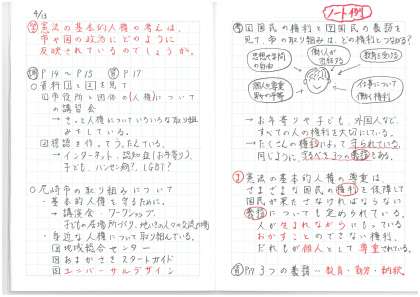 4/13
憲法の基本的人権の考えは、
市や国の政治にどのように
反映されているのでしょうか。
調 P14～P15 資 P17
○資料1と2を見て
1市役所と団体の(人権)について
の講習会
→きっと人権についていろいろな取り組
みをしている。
2標語を作ってうったえている
→インターネット、認知症(お年寄り)、
子ども、ハンセン病?、LGBT?
○尼崎市の取り組みについて
・基本的人権を守るために、
→講演会・ワークショップ、
子どもの居場所づくり、地いきの人々の交流の場
・身近な人権について取り組んでいる。
1地域総合センター
2あまがさきスタートガイド
3ユニバーサルデザイン
ノート例
4国民の権利と5国民の義務を
見て、市の取り組みは、どの権利とつながる?
思想や学問
の自由
働く人が
団結する
教育を受ける
個人の尊重
男女の平等
仕事について
働く権利
→お年寄りや子ども、外国人など、
すべての人の権利を大切にしている。
→たくさんの権利によって守られている。
同じように、するべき3つの義務もある。
憲法の基本的人権の尊重は、
さまざまな国民の権利を保障して
国民が果たさなければならない
義務についても定められている。
人が生まれながらにもっている
おかすことのできない権利、
だれもが個人として尊重されている。
資P17 3つの義務…教育・勤労・納税。